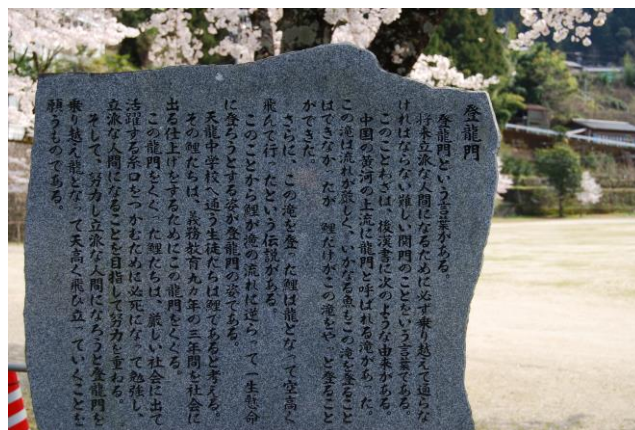 登龍門
登龍門という言葉がある。
将来立派な人間になるために必ず乗り越えて通らな
ければならない難しい関門のことをいう言葉である。
このことわざは、後漢書に次のような由来がある。
中国の黄河の上流に龍門と呼ばれる滝があった。
この滝は流れが激しく、いかなる魚もこの滝を登ること
はできなかったが 鯉だけがこの滝をやっと登ること
ができた。
さらに、この滝を登った鯉は龍となって空高く
飛んで行ったという伝説がある。
このことから鯉が滝の流れに逆らって一生懸命
に登ろうとする姿が登龍門の姿である。
天龍中学校へ通う生徒たちは鯉であると考える。
その鯉たちは、義務教育九ヵ年の三年間を社会に
出る仕上げをするためにこの龍門をくぐる。
この龍門をくぐった鯉たちは、厳しい社会に出て
活躍する糸口をつかむために必死になって勉強し、
立派な人間になることを目指して努力を重ねる。
そして、努力し立派な人間になろうと登龍門を
乗り越え龍となって天高く飛び立っていくことを
願うものである。